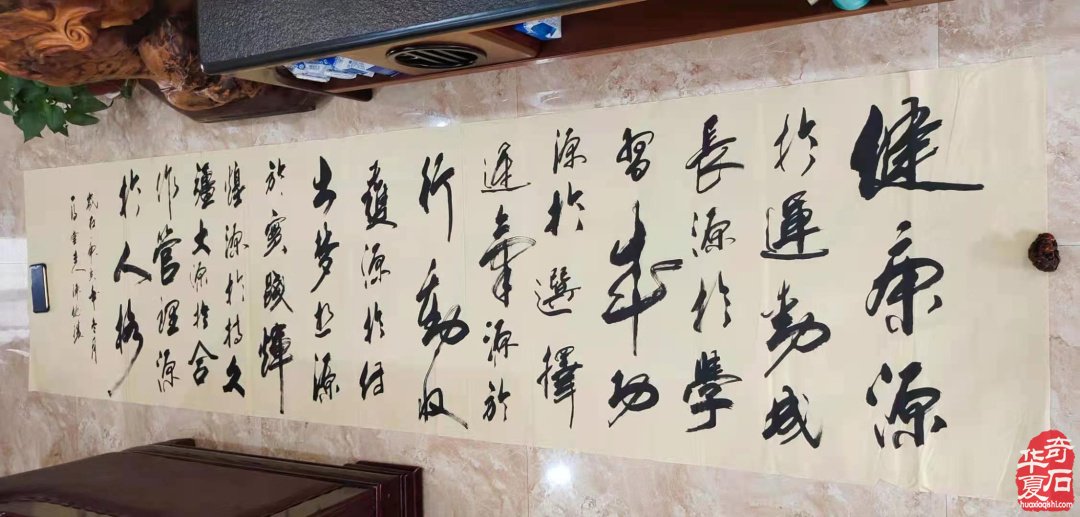 健康源
於運動成
長源於學
習成功
源於選擇
運氣源於
行動收
獲源於付
出梦想源
於實踐輝
煌源於持久
大源於合
作管理源
於人格
华夏奇石
huaxiaqishi.com